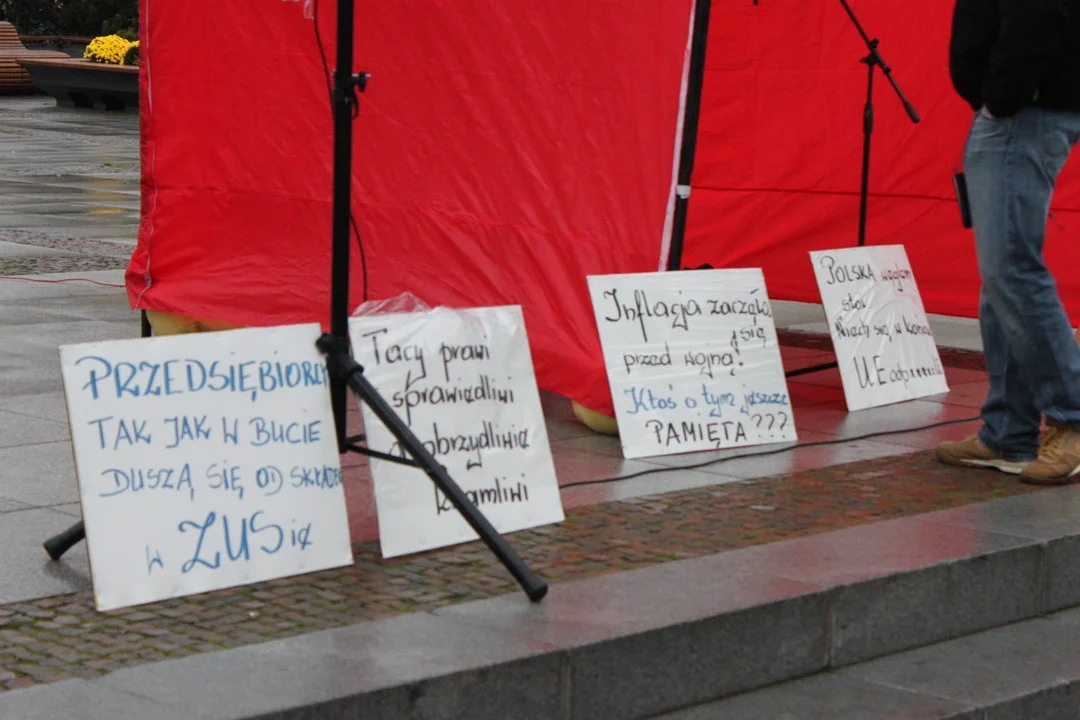 PRZEDSIĘBIORCY
TAK JAK W BUCIE
DUSZĄ SIĘ OD SKŁADEK
W ZUSie
Tacy prawi
sprawiedliwi
a obrzydliwie
kłamliwi
Inflacja zaczęła
się
przed wojną!
Ktoś o tym jeszcze
PAMIĘTA ???
POLSKA węglem
stoi
Niech się w końcu
UE